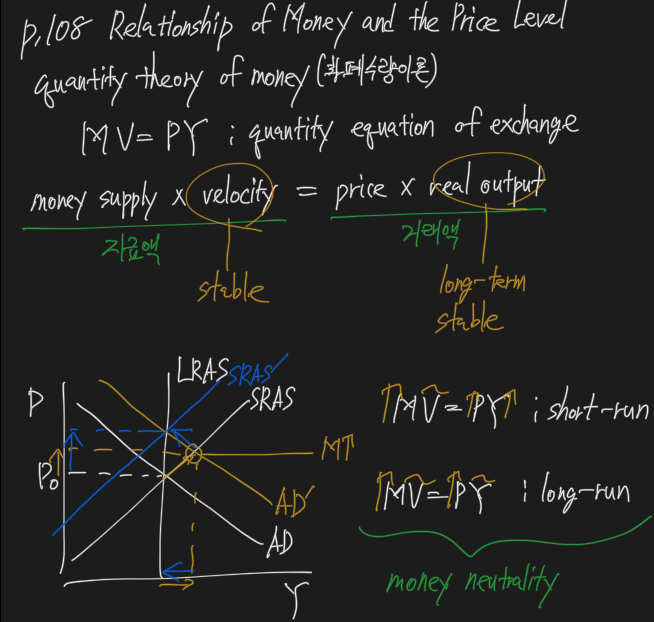 p.108 Relationship of Money and the Price Level
quantity theory of money (화폐수량이론)
MV = PY ; quantity equation of exchange
money supply x velocity = price x real output
자금액 거래액
stable long-term
stable
LRAS SRAS'
SRAS
P
↑MṼ = ↑PY↑ ; short-run
M↑
P₀
↑MṼ = ↑PỸ ; long-run
AD'
AD
money neutrality
Y